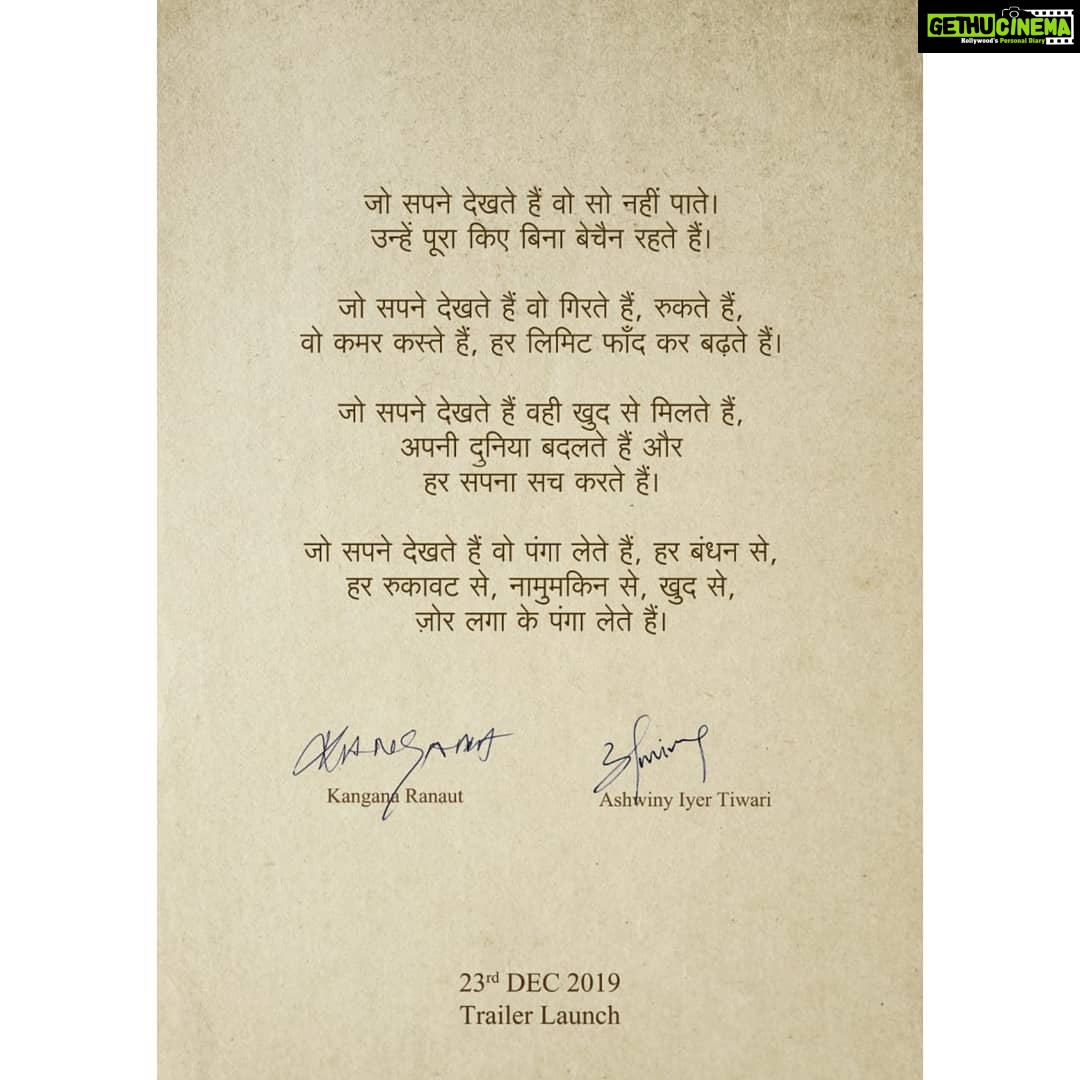 GETHUCINEMA
Kollywood's Personal Diary
जो सपने देखते हैं वो सो नहीं पाते।
उन्हें पूरा किए बिना बेचैन रहते हैं।
जो सपने देखते हैं वो गिरते हैं, रुकते हैं,
वो कमर कस्ते हैं, हर लिमिट फाँद कर बढ़ते हैं।
जो सपने देखते हैं वही खुद से मिलते हैं,
अपनी दुनिया बदलते हैं और
हर सपना सच करते हैं।
जो सपने देखते हैं वो पंगा लेते हैं, हर बंधन से,
हर रुकावट से, नामुमकिन से, खुद से,
ज़ोर लगा के पंगा लेते हैं।
KANGANA
Kangana Ranaut
Ashwiny Iyer Tiwari
23rd DEC 2019
Trailer Launch